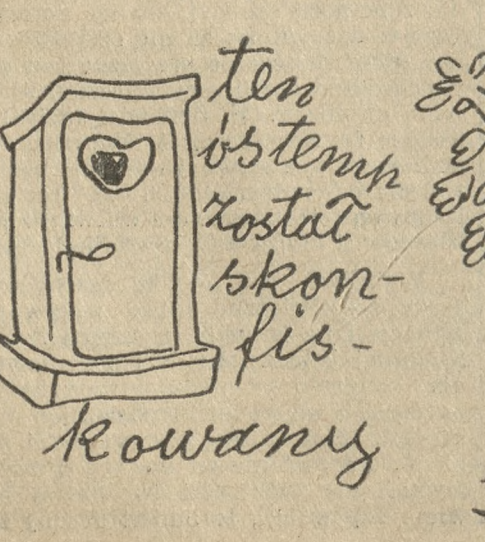 ten
óstemp
został
skon-
fis-
kowany